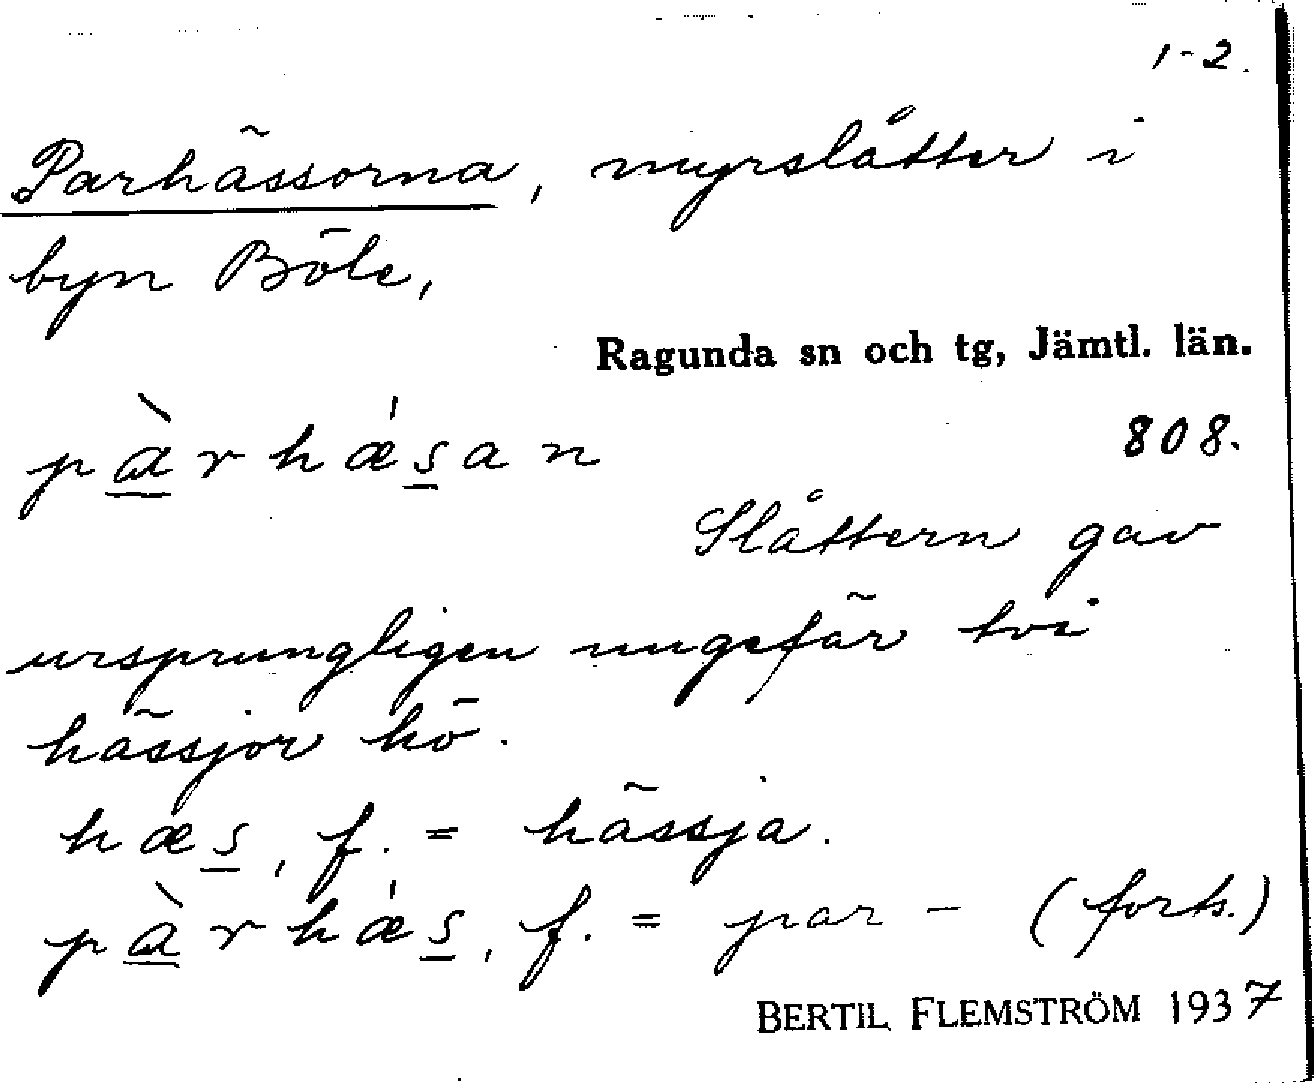 1-2.
Parhässorna, myrslåtter i
byn Böle,
Ragunda sn och tg, Jämtl. län.
pàrhǽsan
808.
Slåttern gav
ursprungligen ungefär två
hässjor hö.
hæs, f. = hässja.
pàrhǽs, f. = par - (forts.)
BERTIL FLEMSTRÖM 1937